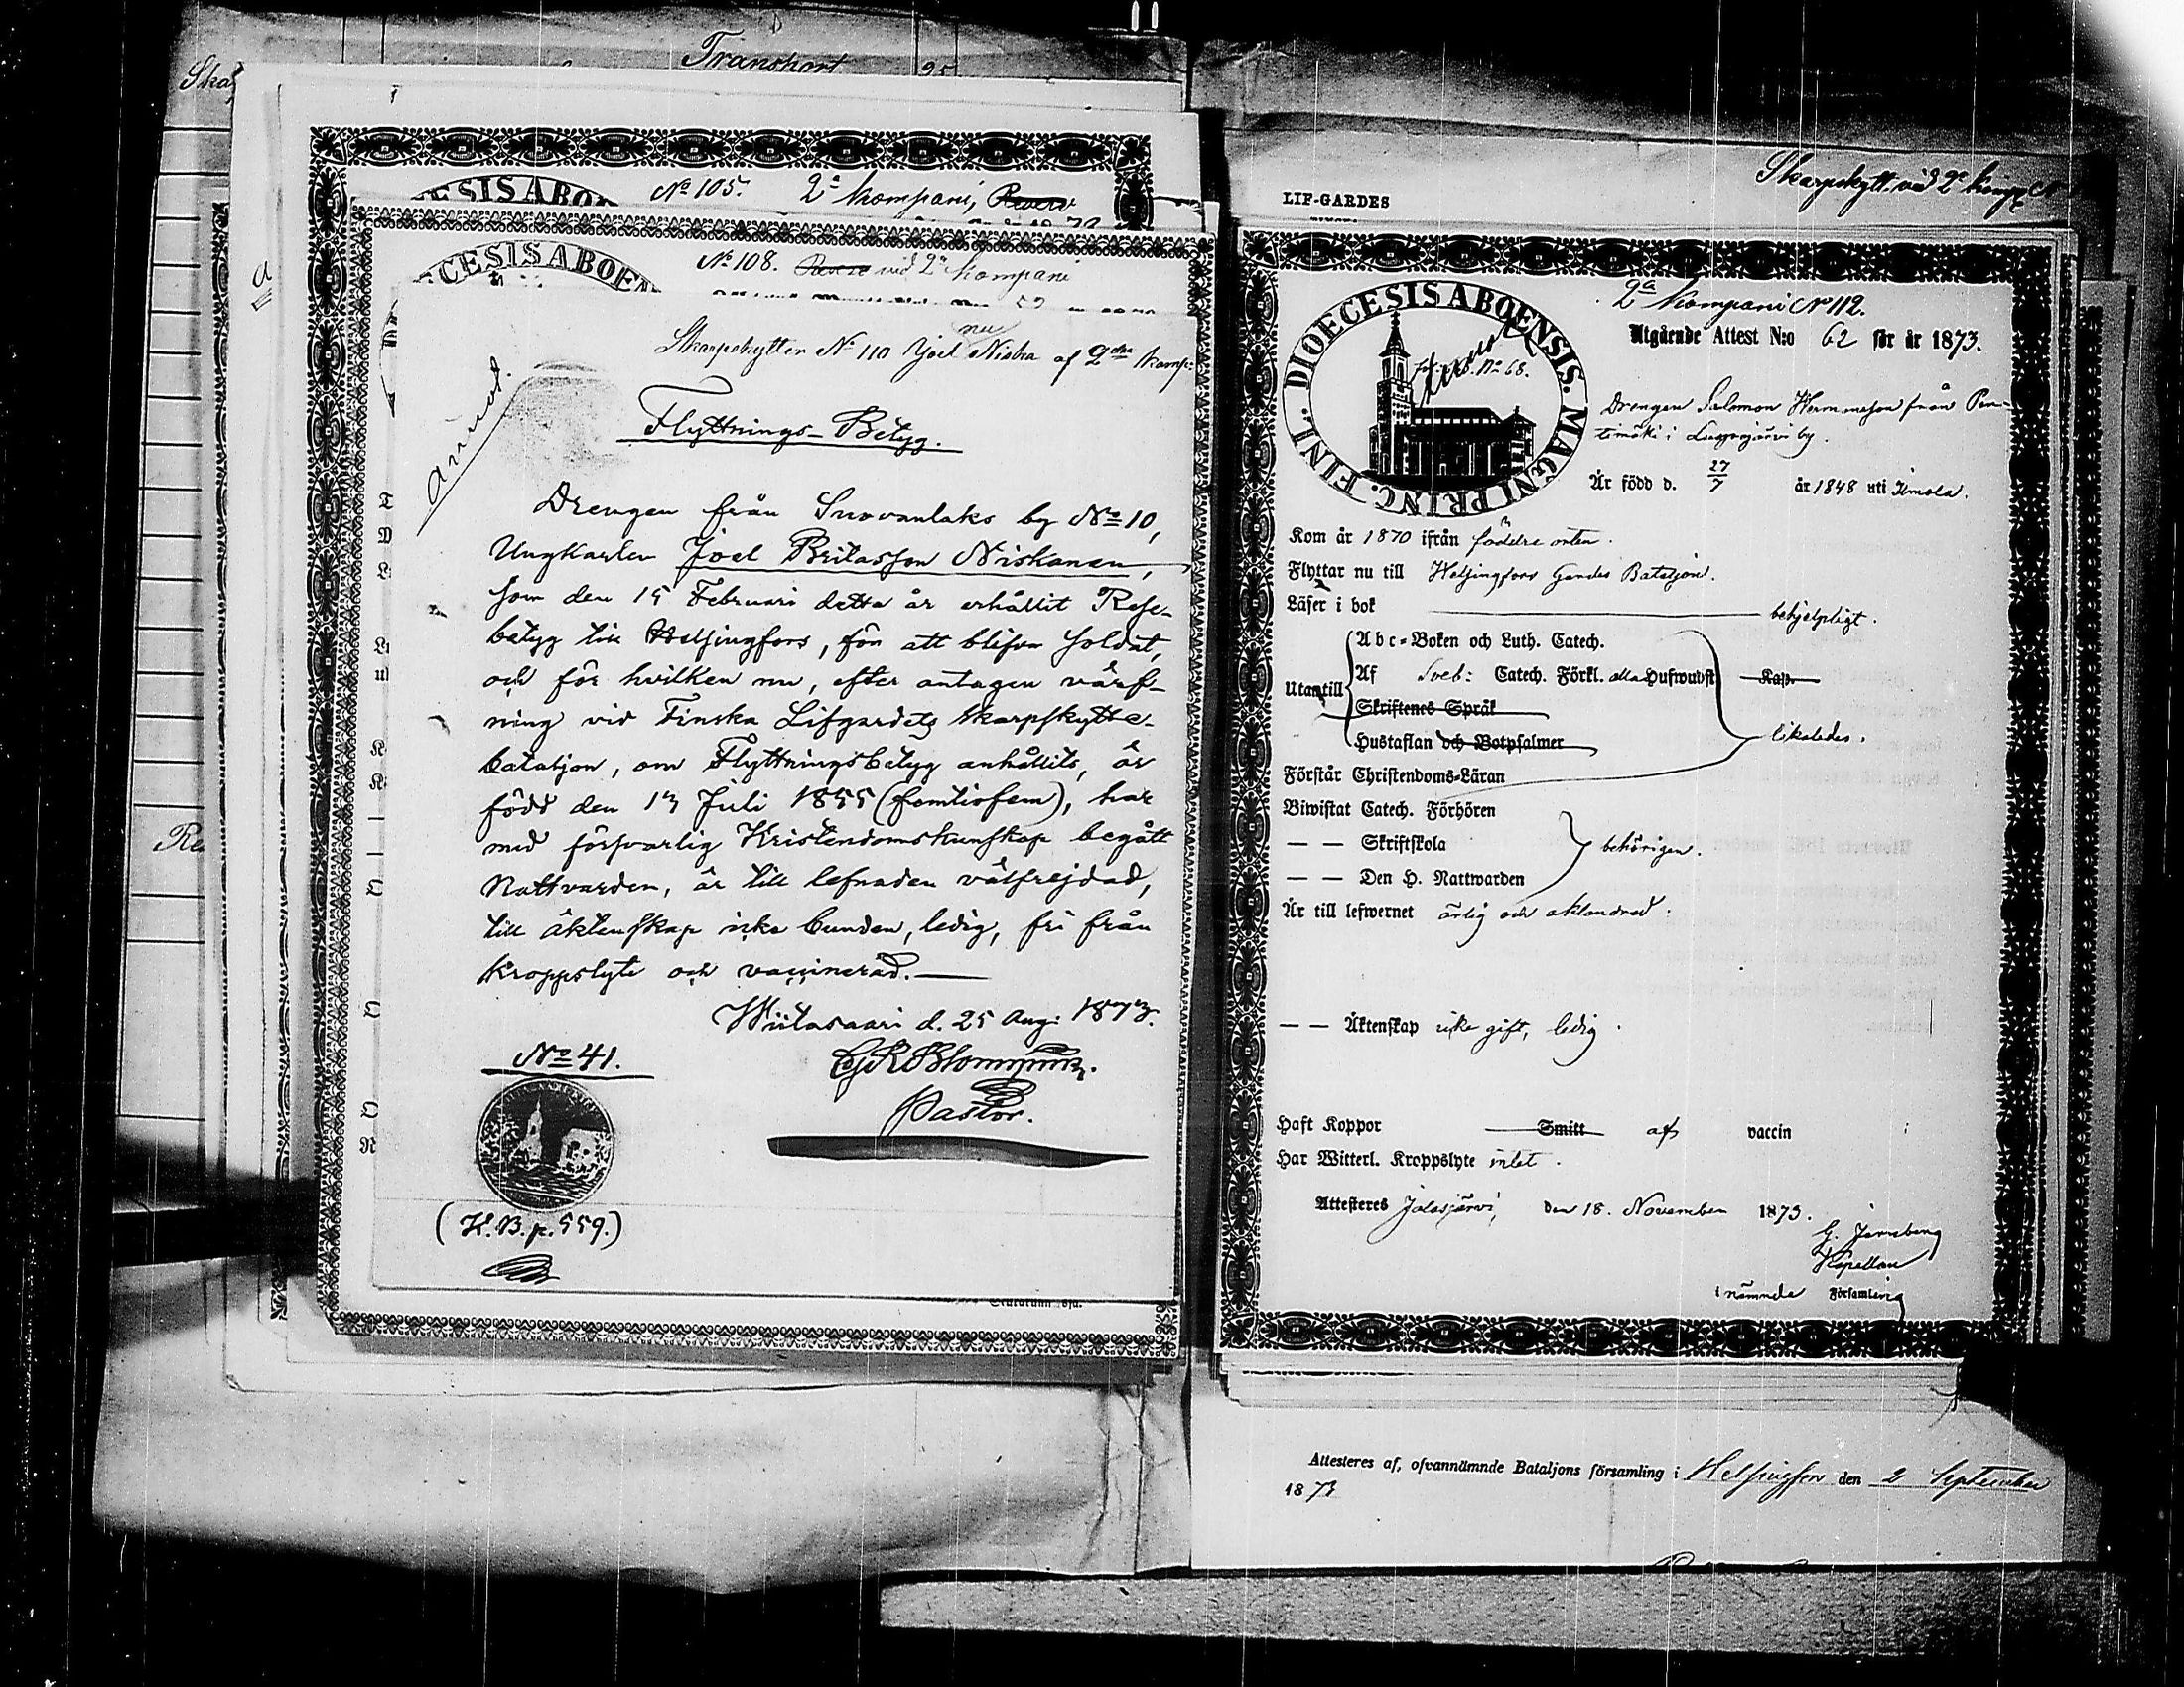 Transport 95
Ska
DIOECESIS ABOENSIS
No 105. 2a Kompani, Reserv
No 108. Reserv vid 2a Kompani
Skarpskytten No 110 Joel Niska nu af 2dra Komp:
Flyttnings-Betyg.
Drengen från Suovanlaks by No 10,
Ungkarlen Joel Britasson Niskanen,
som den 15 Februari detta år erhållit Rese-
betyg till Helsingfors, för att blifva soldat,
och för hvilken nu, efter antagen värf-
ning vid Finska Lifgardets Skarpskytte-
bataljon, om Flyttningsbetyg anhållits, är
född den 13 Juli 1855 (femtiofem), har
med försvarlig Kristendomskunskap begått
Nattvarden, är till lefnaden välfrejdad,
till äktenskap icke bunden, ledig, fri från
kroppslyte och vaccinerad.
Wiitasaari d. 25 Aug: 1873.
No 41.
Pastor.
(K.B. p. 559.)
LIF-GARDES
Skarpskytt. vid 2a Komp
DIOECESIS ABOENSIS. MAGNI PRINC. FINL.
fol. No 68.
2a Kompani No 112.
Utgående Attest N:o 62 för år 1873.
Drengen Salomon Hermansson från Pen-
timäki i Luopajärvi by.
Är född d. 27/7 år 1848 uti Ilmola.
Kom år 1870 ifrån födelse orten.
Flyttar nu till Helsingfors Gardes Bataljon.
Läser i bok behjelpligt.
Utantill
Abc-Boken och Luth. Catech.
Af Sveb: Catech. Förkl. Hufwudst Kap.
Skriftenes Språk
Hustaflan och Botpsalmer likaledes.
Förstår Christendoms-Läran
Biwistat Catech. Förhören
— — Skriftskola behörigen.
— — Den H. Nattwarden
Är till lefwernet ärlig och oklandrad.
— — Äktenskap icke gift, ledig.
Haft Koppor Smitt af vaccin
Har Witterl. Kroppslyte intet.
Attesteres Jalasjärvi, den 18. November 1873.
Kapellan
i nämnde Församling
Attesteres af, ofvannämnde Bataljons församling i Helsingfors den 2 September
1873